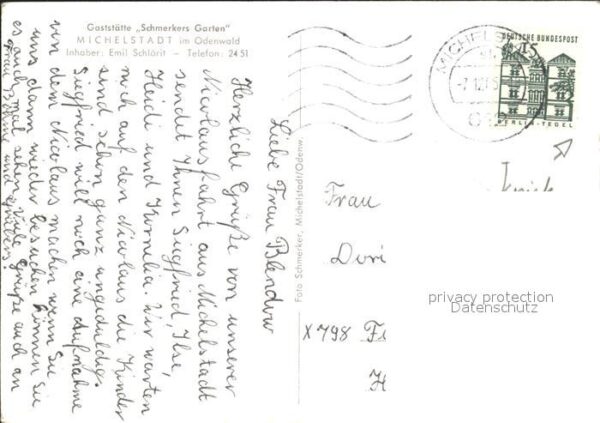 Gaststätte „Schmerkers Garten"
MICHELSTADT im Odenwald
Inhaber: Emil Schlörit – Telefon: 24 51
Liebe Frau Blendow
Herzliche Grüße von unserer
Nicolausfahrt aus Michelstadt
sendet Ihnen Siegfried, Ilse,
Heidi und Kornelia. Wir warten
noch auf den Nicolaus die Kinder
sind schon ganz ungeduldig
Siegfried will noch eine Aufnahme
von den Nicolaus machen wenn Sie
uns dann wieder besuchen können Sie
es auch mal sehen. Viele Grüße auch an
Frau Böhme und
Foto Schmerker, Michelstadt/Odenw.
MICHELS
15
DEUTSCHE BUNDESPOST
BERLIN-TEGEL
Frau
Dori
X 798
H
privacy protection
Datenschutz